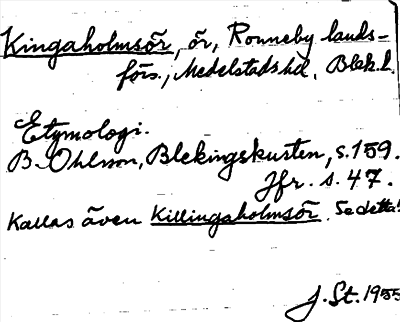 Kingaholmsör, ör, Ronneby lands-
förs., Medelstads hd, Blek. l.
Etymologi.
B. Ohlsson, Blekingskusten, s. 159.
Jfr. s. 47.
Kallas även Killingaholmsör. Se detta!
J. St. 1955